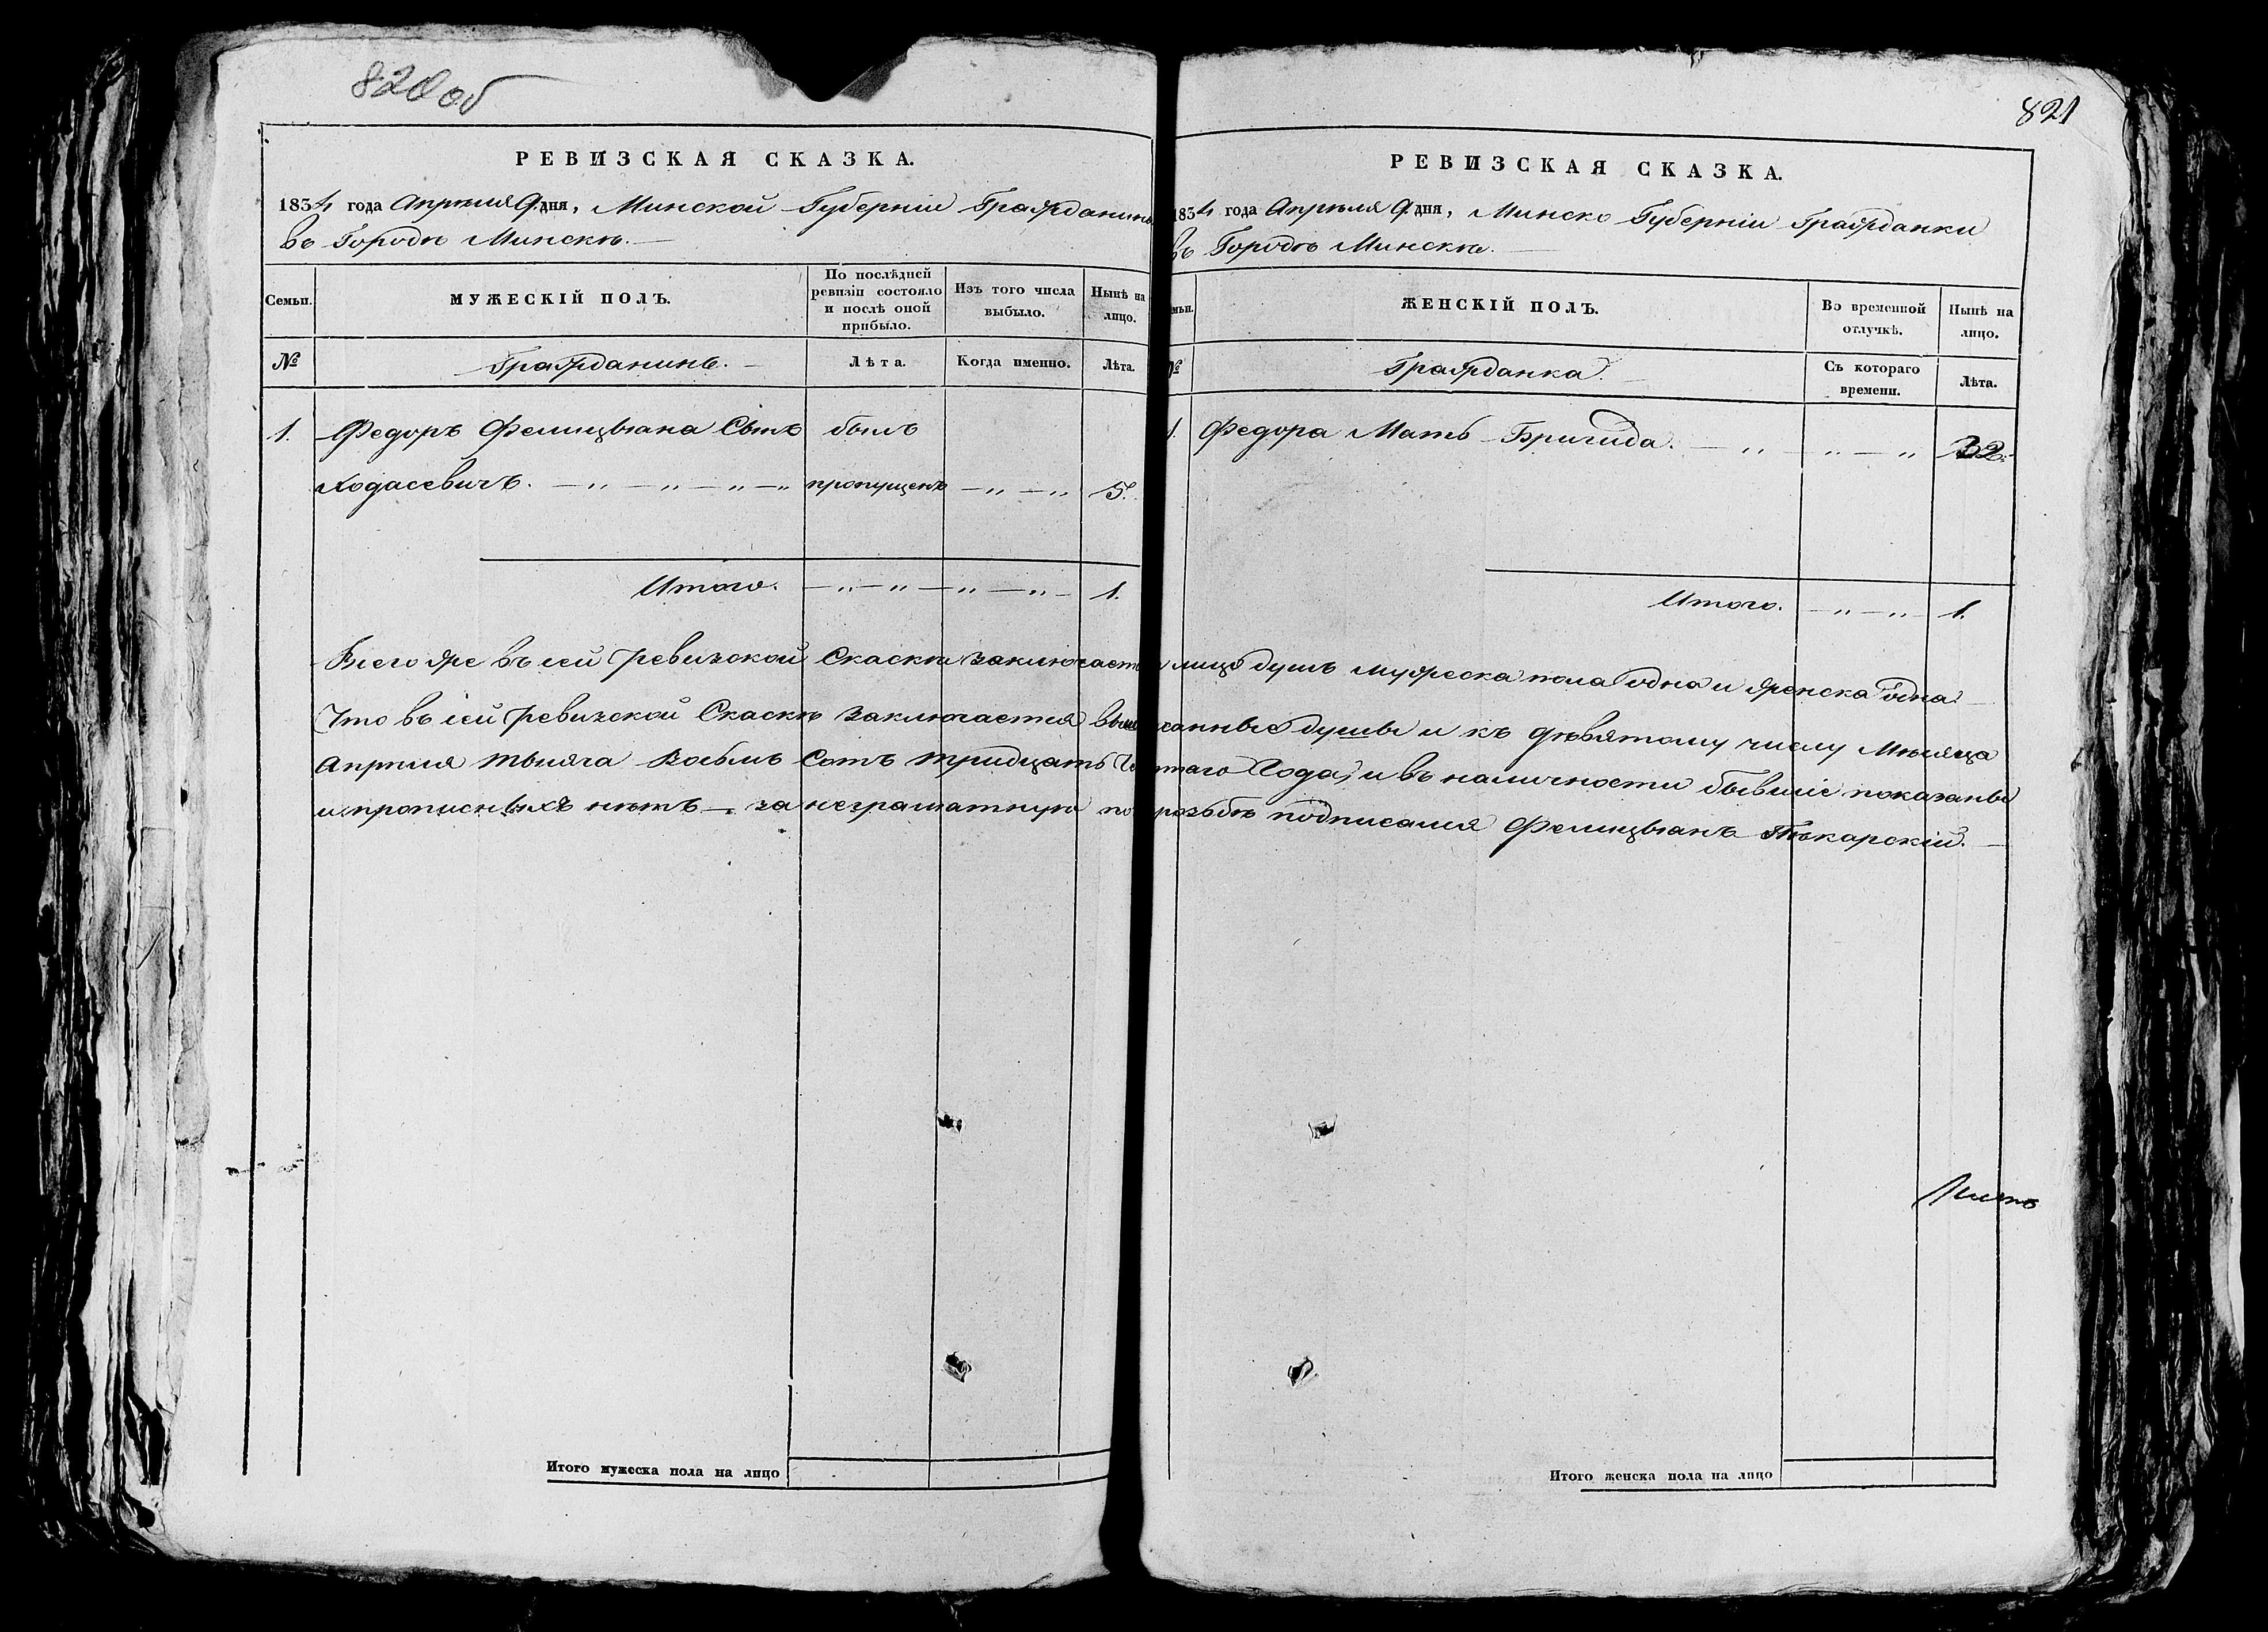 820об
РЕВИЗСКАЯ СКАЗКА.
1834 года Апрѣля 9. дня, Минской Губерніи Гражданинъ
въ Городѣ Минскѣ.
Семьи.
МУЖЕСКІЙ ПОЛЪ.
По послѣдней ревизіи состояло и послѣ оной прибыло.
Изъ того числа выбыло.
Нынѣ на лицо.
№
Гражданинъ.
Лѣта.
Когда именно.
Лѣта.
1. Федоръ Фелиціана Сынъ былъ
Ходасевичъ. — „ — „ — „ — „ пропущенъ — „ — „ 5.
Итого. — „ — „ — „ — „ — 1.
Итого мужеска пола на лицо
821
РЕВИЗСКАЯ СКАЗКА.
1834 года Апрѣля 9. дня, Минско Губерніи Гражданки
въ Городѣ Минскѣ.
мьи.
ЖЕНСКІЙ ПОЛЪ.
Во временной отлучкѣ.
Нынѣ на лицо.
№
Гражданка.
Съ котораго времени.
Лѣта.
1. Федора Мать Бригида. — „ — „ — „ 32.
Итого. — „ — „ — 1.
Всего же въ сей ревизской Скаскѣ заключается лицо душъ мужеска пола одна и женска одна
Что въ сей ревизской Скаскѣ заключается душы и къ дѣвятому числу Мѣсяца
Апрѣля тысяча восьмъ Сотъ тридцать Года, и въ наличности бывшіе показаны
и прописныхъ нѣтъ — за неграматную по прозьбѣ подписался Фелиціанъ Токарскій.
Листъ
Итого женска пола на лицо